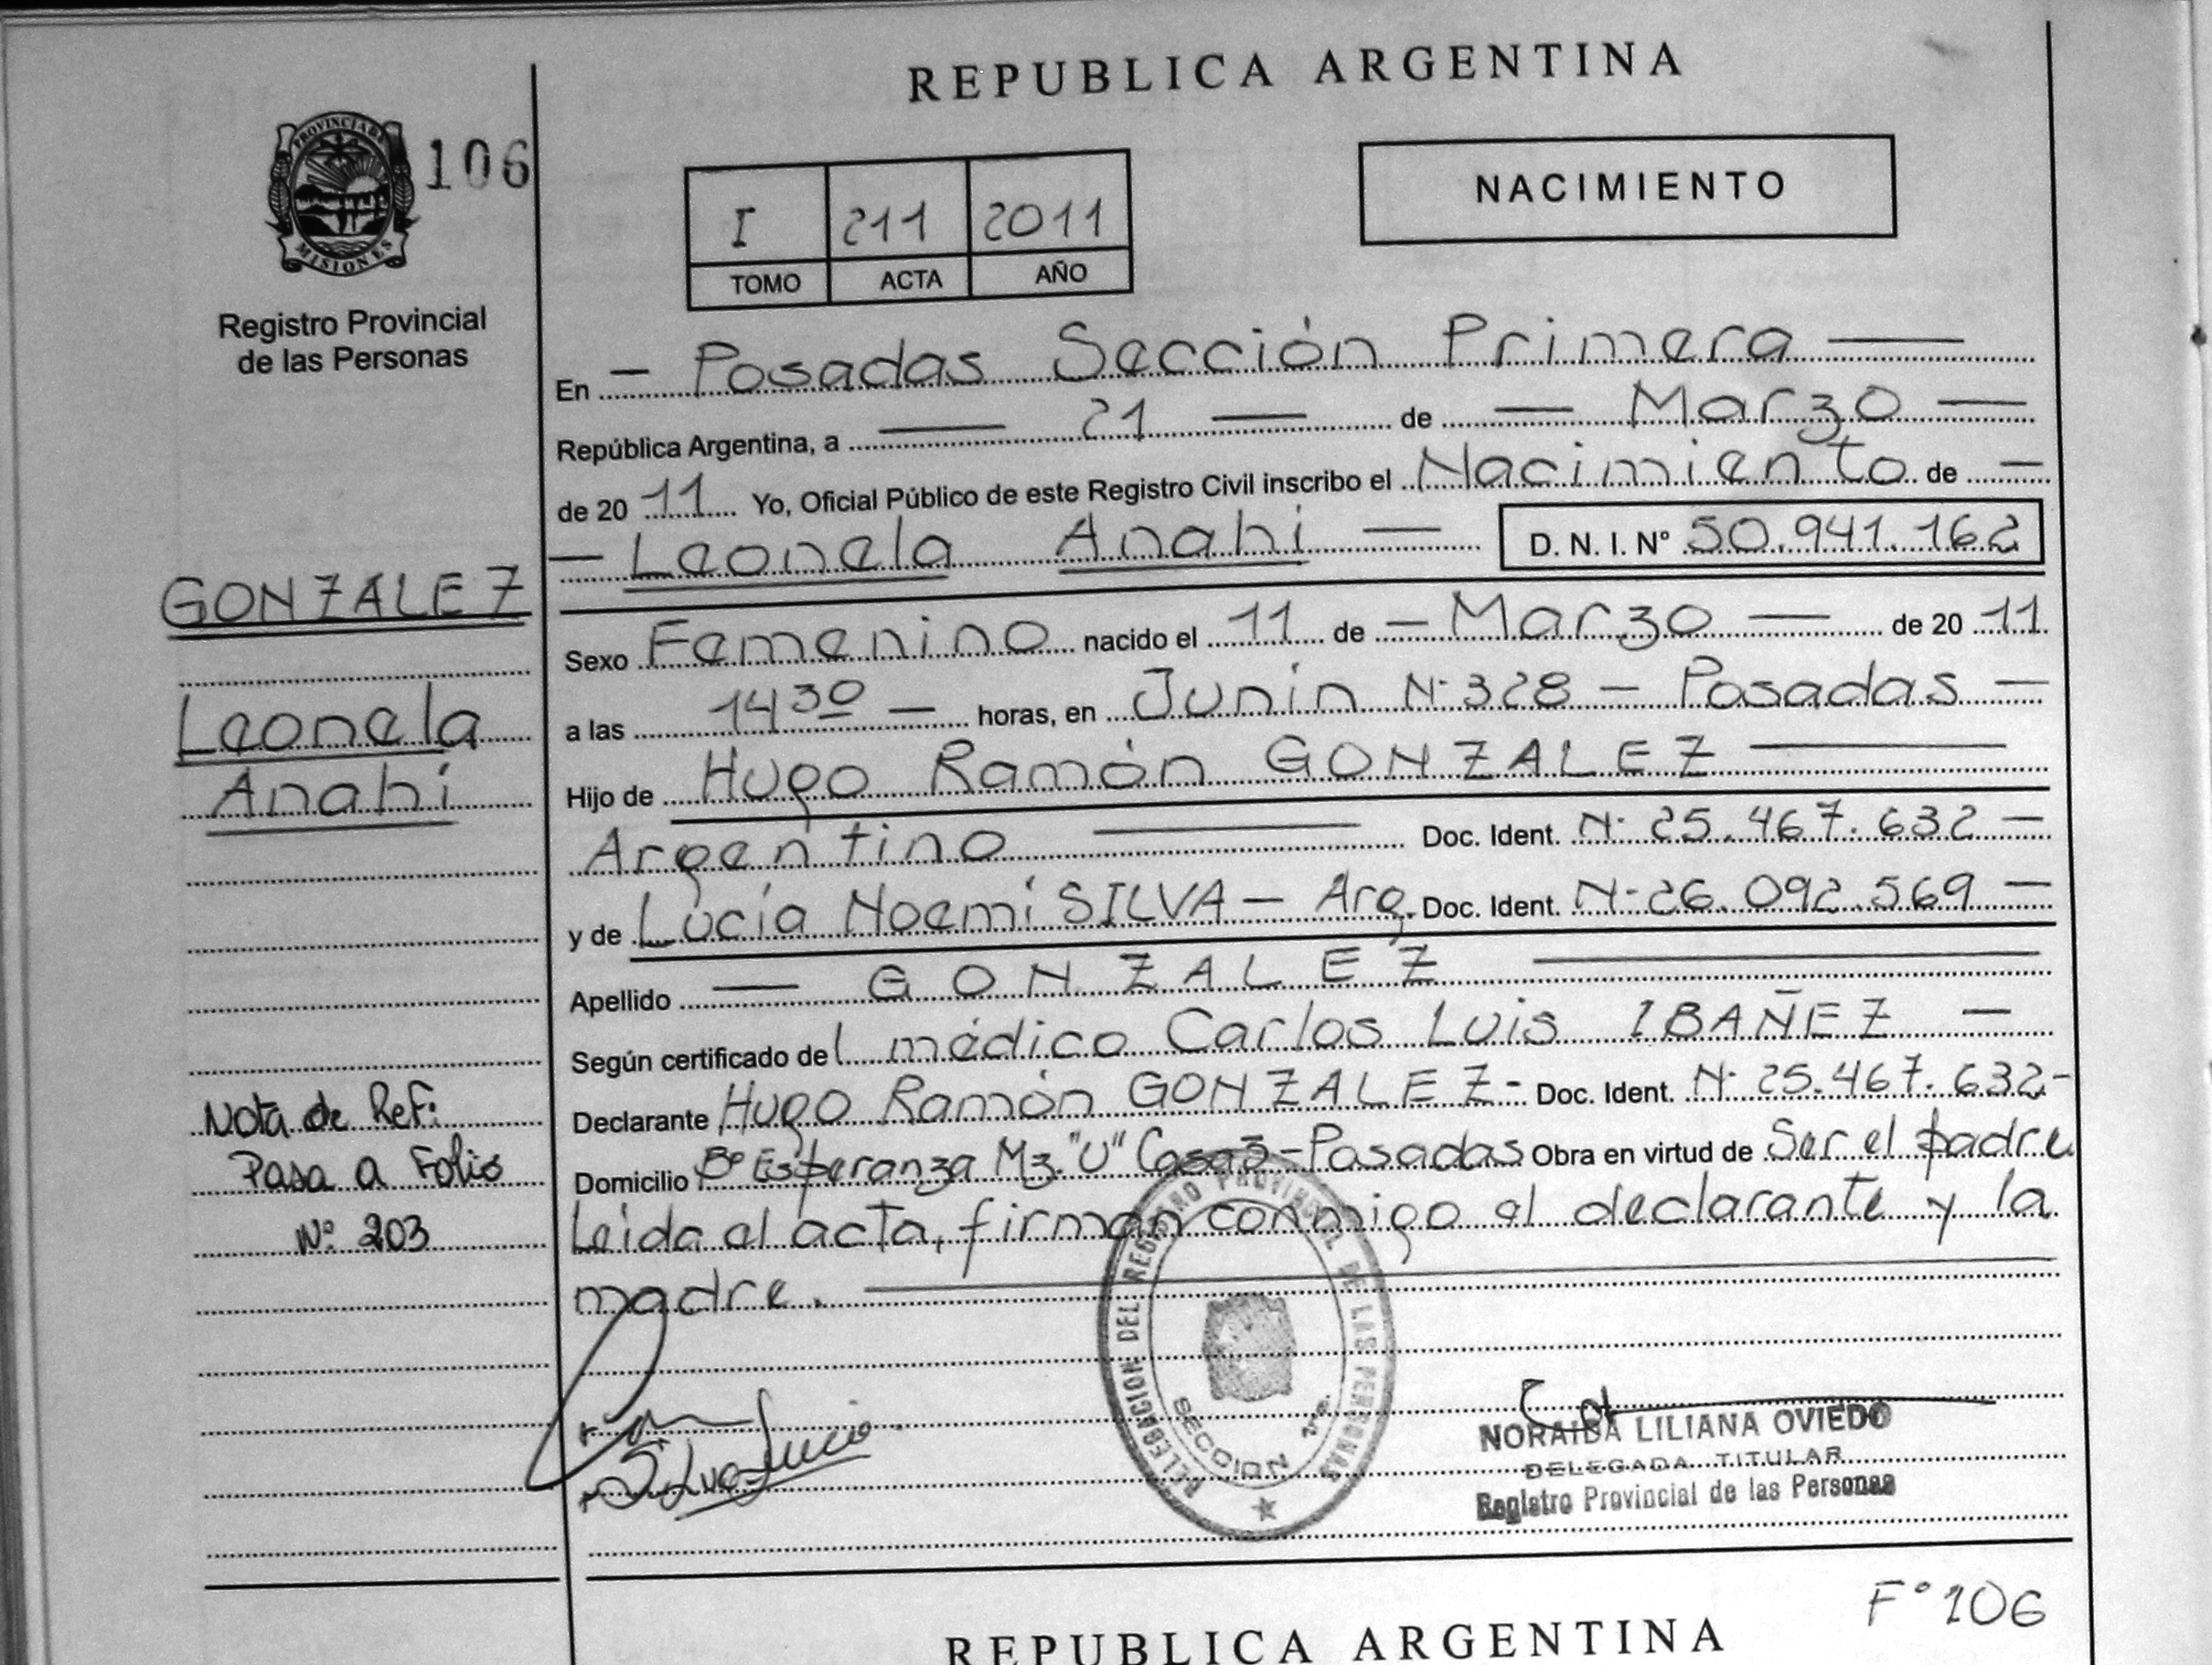 REPUBLICA ARGENTINA
PROVINCIA DE
MISIONES
106
Registro Provincial
de las Personas
I 211 2011
TOMO ACTA AÑO
NACIMIENTO
En — Posadas Sección Primera —
República Argentina, a — 21 — de — Marzo —
de 20 11 Yo, Oficial Público de este Registro Civil inscribo el Nacimiento de —
— Leonela Anahi — D. N. I. Nº 50.941.162
GONZALEZ
Leonela
Anahí
Sexo Femenino nacido el 11 de — Marzo — de 20 11
a las 14 30 — horas, en Junín Nº 328 — Posadas —
Hijo de Hugo Ramón GONZALEZ —
Argentino — Doc. Ident. Nº 25.467.632 —
y de Lucía Noemí SILVA — Arg. Doc. Ident. Nº 26.092.569 —
Apellido — GONZALEZ —
Según certificado del médico Carlos Luis IBAÑEZ —
Declarante Hugo Ramón GONZALEZ - Doc. Ident. Nº 25.467.632-
Domicilio Bº Esperanza Mz. "U" Casa 3 - Posadas Obra en virtud de Ser el padre
Leida el acta, firman conmigo el declarante y la
madre. —
Nota de Ref:
Pasa a Folio
Nº 203
Silva Lucia
DELEGACION DEL REGISTRO PROVINCIAL DE LAS PERSONAS
SECCION 1ra.
NORAIDA LILIANA OVIEDO
DELEGADA TITULAR
Registro Provincial de las Personas
Fº 106
REPUBLICA ARGENTINA